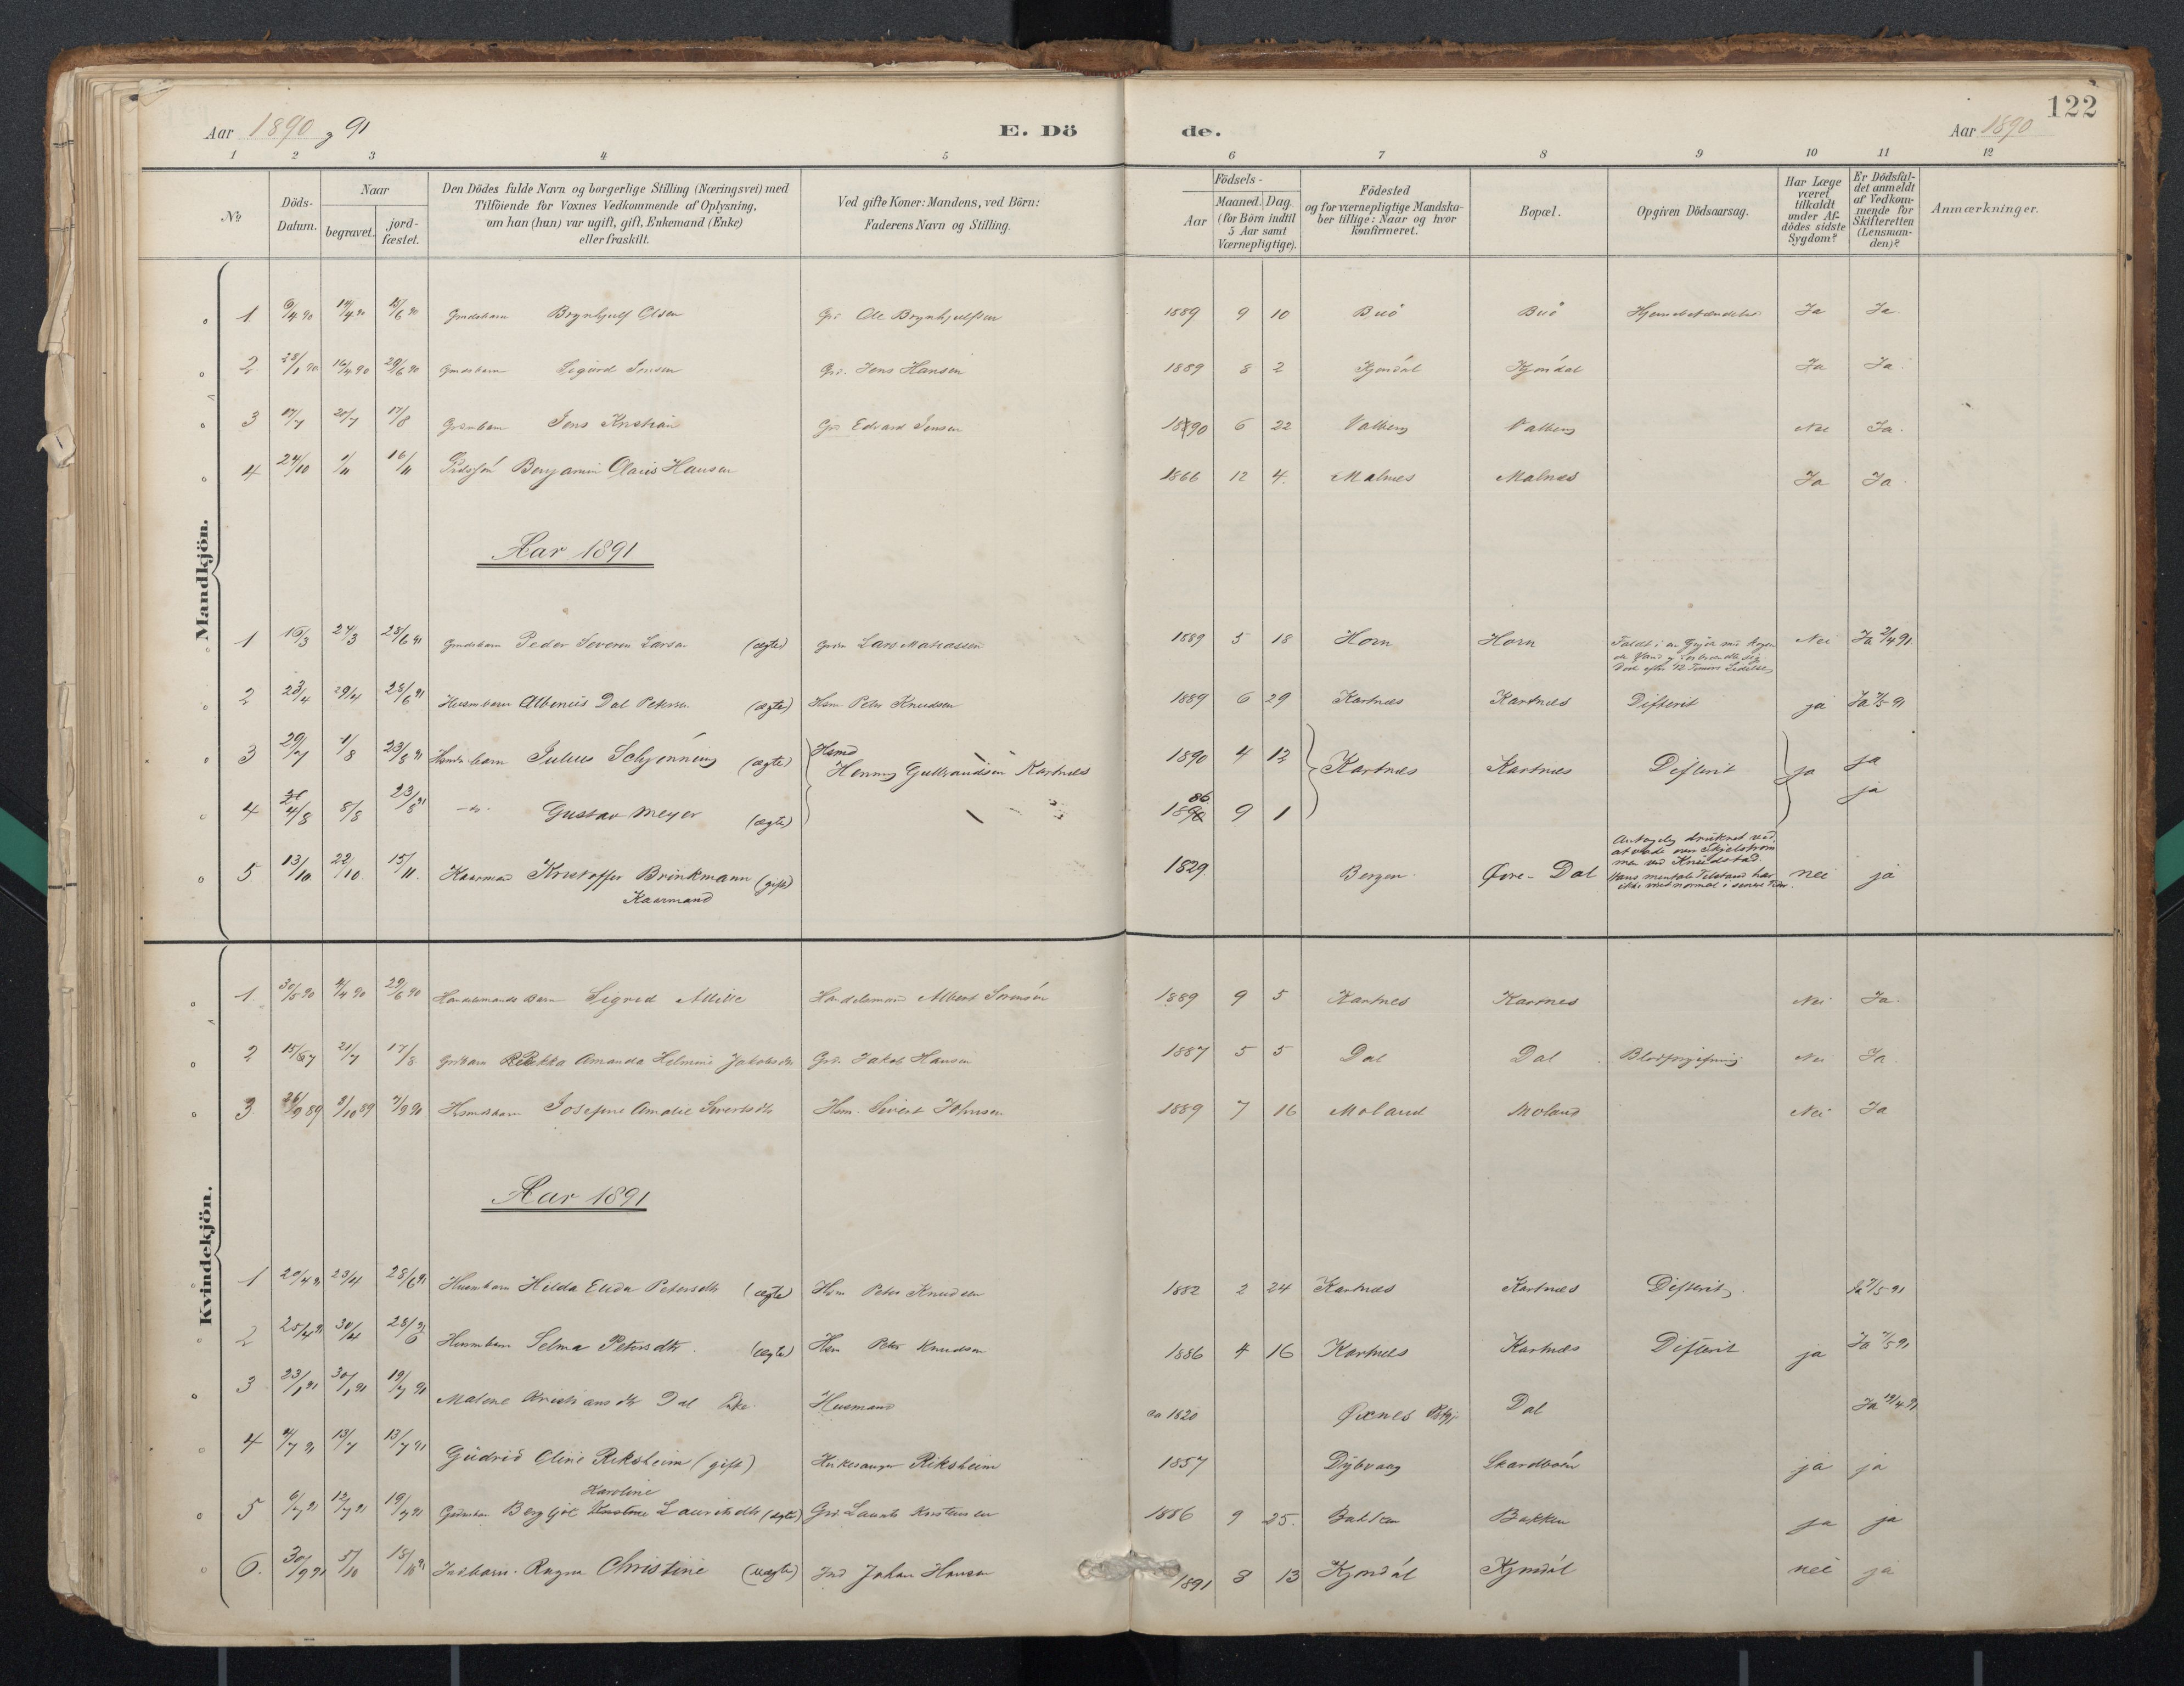 122
Aar 1890 og 91 E. Dö de. Aar 1890
1 2 3 4 5 6 7 8 9 10 11 12
No.
Döds-Datum.
Naar
begravet.
jord-fæstet.
Den Dödes fulde Navn og borgerlige Stilling (Næringsvei) med
Tilföiende for Voxnes Vedkommende af Oplysning,
om han (hun) var ugift, gift, Enkemand (Enke)
eller fraskilt.
Ved gifte Koner: Mandens, ved Börn:
Faderens Navn og Stilling.
Födsels-
Aar
Maaned. Dag.
(for Börn indtil
5 Aar samt
Værnepligtige).
Födested
og for værnepligtige Mandska-
ber tillige: Naar og hvor
konfirmeret.
Bopæl.
Opgiven Dödsaarsag.
Har Læge
været
tilkaldt
under Af-
dödes sidste
Sygdom?
Er Dödsfal-
det anmeldt
af Vedkom-
mende for
Skifteretten
(Lensman-
den)?
Anmærkninger.
Mandkjön.
1 6/4 90 14/4 90 15/6 90 Grdsbarn Brynhjulf Olsen Grd. Ole Brynhjulfsen 1889 9 10 Buö Buö Hjernebetændelse Ja Ja.
2 28/1 90 16/4 90 29/6 90 Grdsbarn Sigurd Jensen Grd. Jens Hansen 1889 8 2 Kjøndal Kjøndal Ja Ja.
3 17/7 20/7 17/8 Grdmbarn Jens Kristian Grd Edvard Jensen 1890 6 22 Valberg Valberg Nei Ja.
4 24/10 1/11 16/11 Benjamin Olaus Hansen 1866 12 4. Malnes Malnes Ja Ja.
Aar 1891
1 16/3 24/3 28/6 91 Grdsbarn Peder Severin Larsen (ægte) Grdm Lars Mathiassen 1889 5 18 Horn Horn Faldt i en Gryde med kogen
de Vand og forbrændte sig
Døde efter 12 Timers Lidelse Nei Ja 2/4 91
2 23/4 29/4 28/6 91 Husmbarn Albinius Dal Petersen (ægte) Hsm. Peter Knudsen 1889 6 29 Kartnes Kartnes Difterit ja Ja 7/5 91
3 29/7 1/8 23/8 91 Husmdsbarn Julius Schjønning (ægte) Hsmd
Henning Gulbrandsen Kartnes 1890 4 12 Kartnes Kartnes Difterit ja ja
4 4/8 8/8 23/8 91 -do- Gustav Meyer (ægte) 1886 9 1 ja
5 13/10 22/10 15/11 Kaarmand Kristoffer Brinkmann (gift)
Kaarmand 1829 Bergen. Øvre-Dal Antagelig druknet ved
at vade over Skjelstrøm
men ved Knudstad.
Hans mentale Tilstand har
ikke været normal i senere Tid. nei ja
Kvindekjön.
1. 30/3 90 4/4 90 29/6 90 Handelsmands Barn Sigrid Handelsmand Albert Sørensen 1889 9 5 Kartnes Kartnes Nei Ja.
2 15/7 21/7 17/8 Grdbarn Rebekka Amanda Helmine Jakobsdtr Grd. Jakob Hansen 1887 5 5 Dal Dal Blodforgiftning Nei Ja.
3 26/9 89 2/10 89 7/9 90 Hsmdsbarn Josefine Amalie Sivertsdtr Hsm. Sivert Johnsen 1889 7 16 Moland Moland Nei Ja
Aar 1891
1 20/4 91 23/4 28/6 91 Husmbarn Hilda Elida Petersdtr (ægte) Hsm Peter Knudsen 1882 2 24 Kartnes Kartnes Difterit. Ja 7/5 91
2 25/4 91 30/4 28/6 91 Husmbarn Selma Petersdtr. (ægte) Hsm Peter Knudsen 1886 4 16 Kartnes Kartnes Difterit ja Ja 7/5 91
3 23/1 91 30/1 91 19/7 91 Malene Kristiansdtr Dal Enke. Husmand ca 1820 Øxnes Dal Ja 19/4 91
4 4/7 91 13/7 13/7 91 Gudrid Oline Riksheim (gift) Kirkesanger Riksheim 1857 Dybvaag Skardbøen ja ja
Karoline
5 6/7 91 12/7 91 19/7 91 Grdmbarn Bergljot Lauritsdtr (ægte) Grd. Laurits Kristensen 1886 9 25. Bakken Bakken ja ja
6. 30/9 91 5/10 18/10 91 Indbarn. Ragna Christine (uægte) Ind Johan Hansen 1891 8 13 Kjøndal Kjøndal nei ja